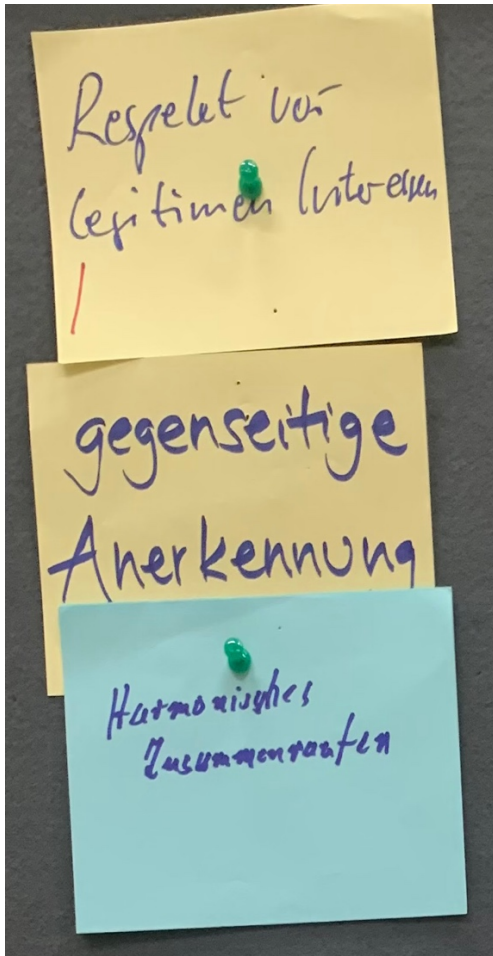 Respekt vor
legitimen Interessen
gegenseitige
Anerkennung
Harmonisches
Zusammenraufen